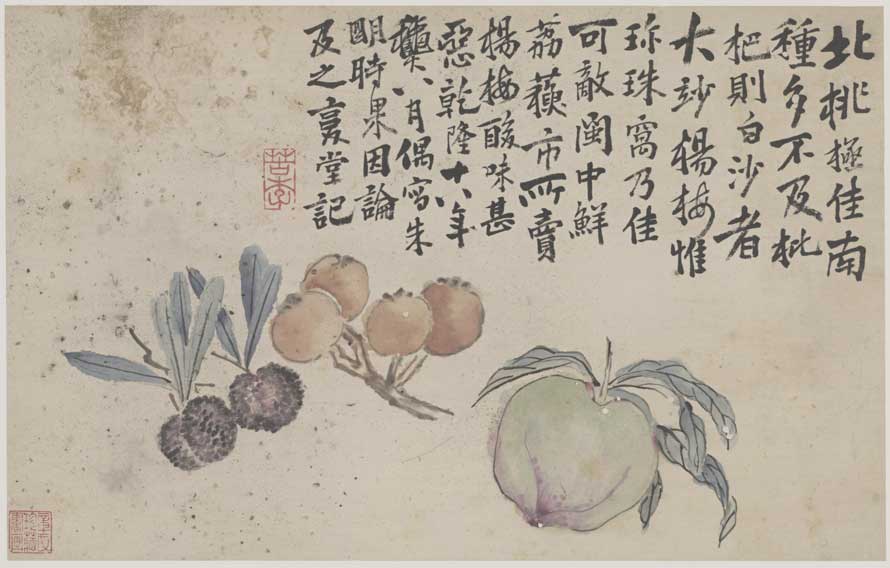 北桃極佳南
種多不及枇
杷則白沙者
大玅楊梅惟
珎珠窩乃佳
可敵閩中鮮
荔市所賣
楊梅酸味甚
惡乾隆十八年
龝八月偶寫朱
明時果因論
及之复堂記
苦李